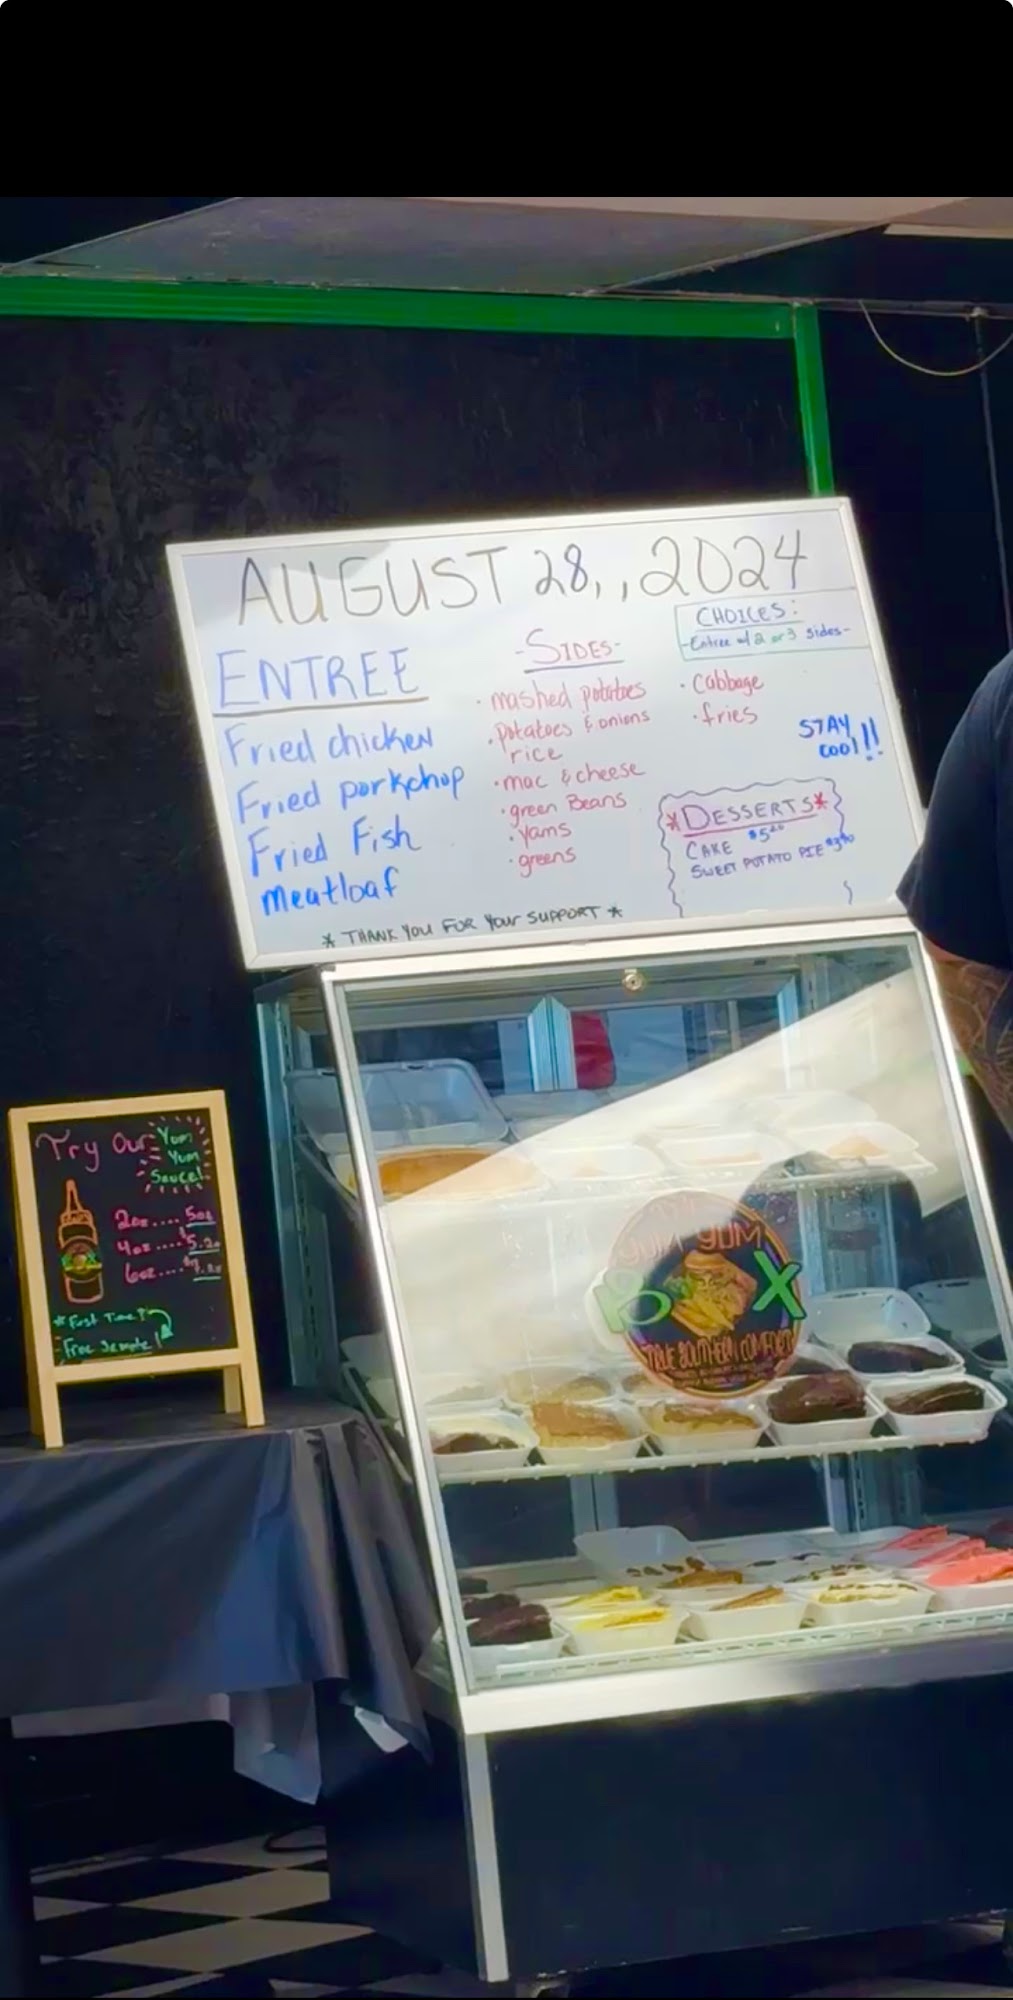 AUGUST 28,, 2024
CHOICES:
-Entree w/ 2 or 3 sides-
ENTREE
Fried chicken
Fried porkchop
Fried Fish
meatloaf
-SIDES-
· mashed potatoes
· potatoes & onions
rice
· mac & cheese
· green Beans
· yams
· greens
· cabbage
· fries
STAY
cool!!
*DESSERTS*
CAKE $5
SWEET POTATO PIE
* THANK YOU FOR Your SUPPORT *
Try Our Yum
Yum
Sauce!
2oz....
4oz....
6oz....
* First Time?
- Free Sample!
YUM YUM
BOX
TRUE SOUTHERN COMFORT